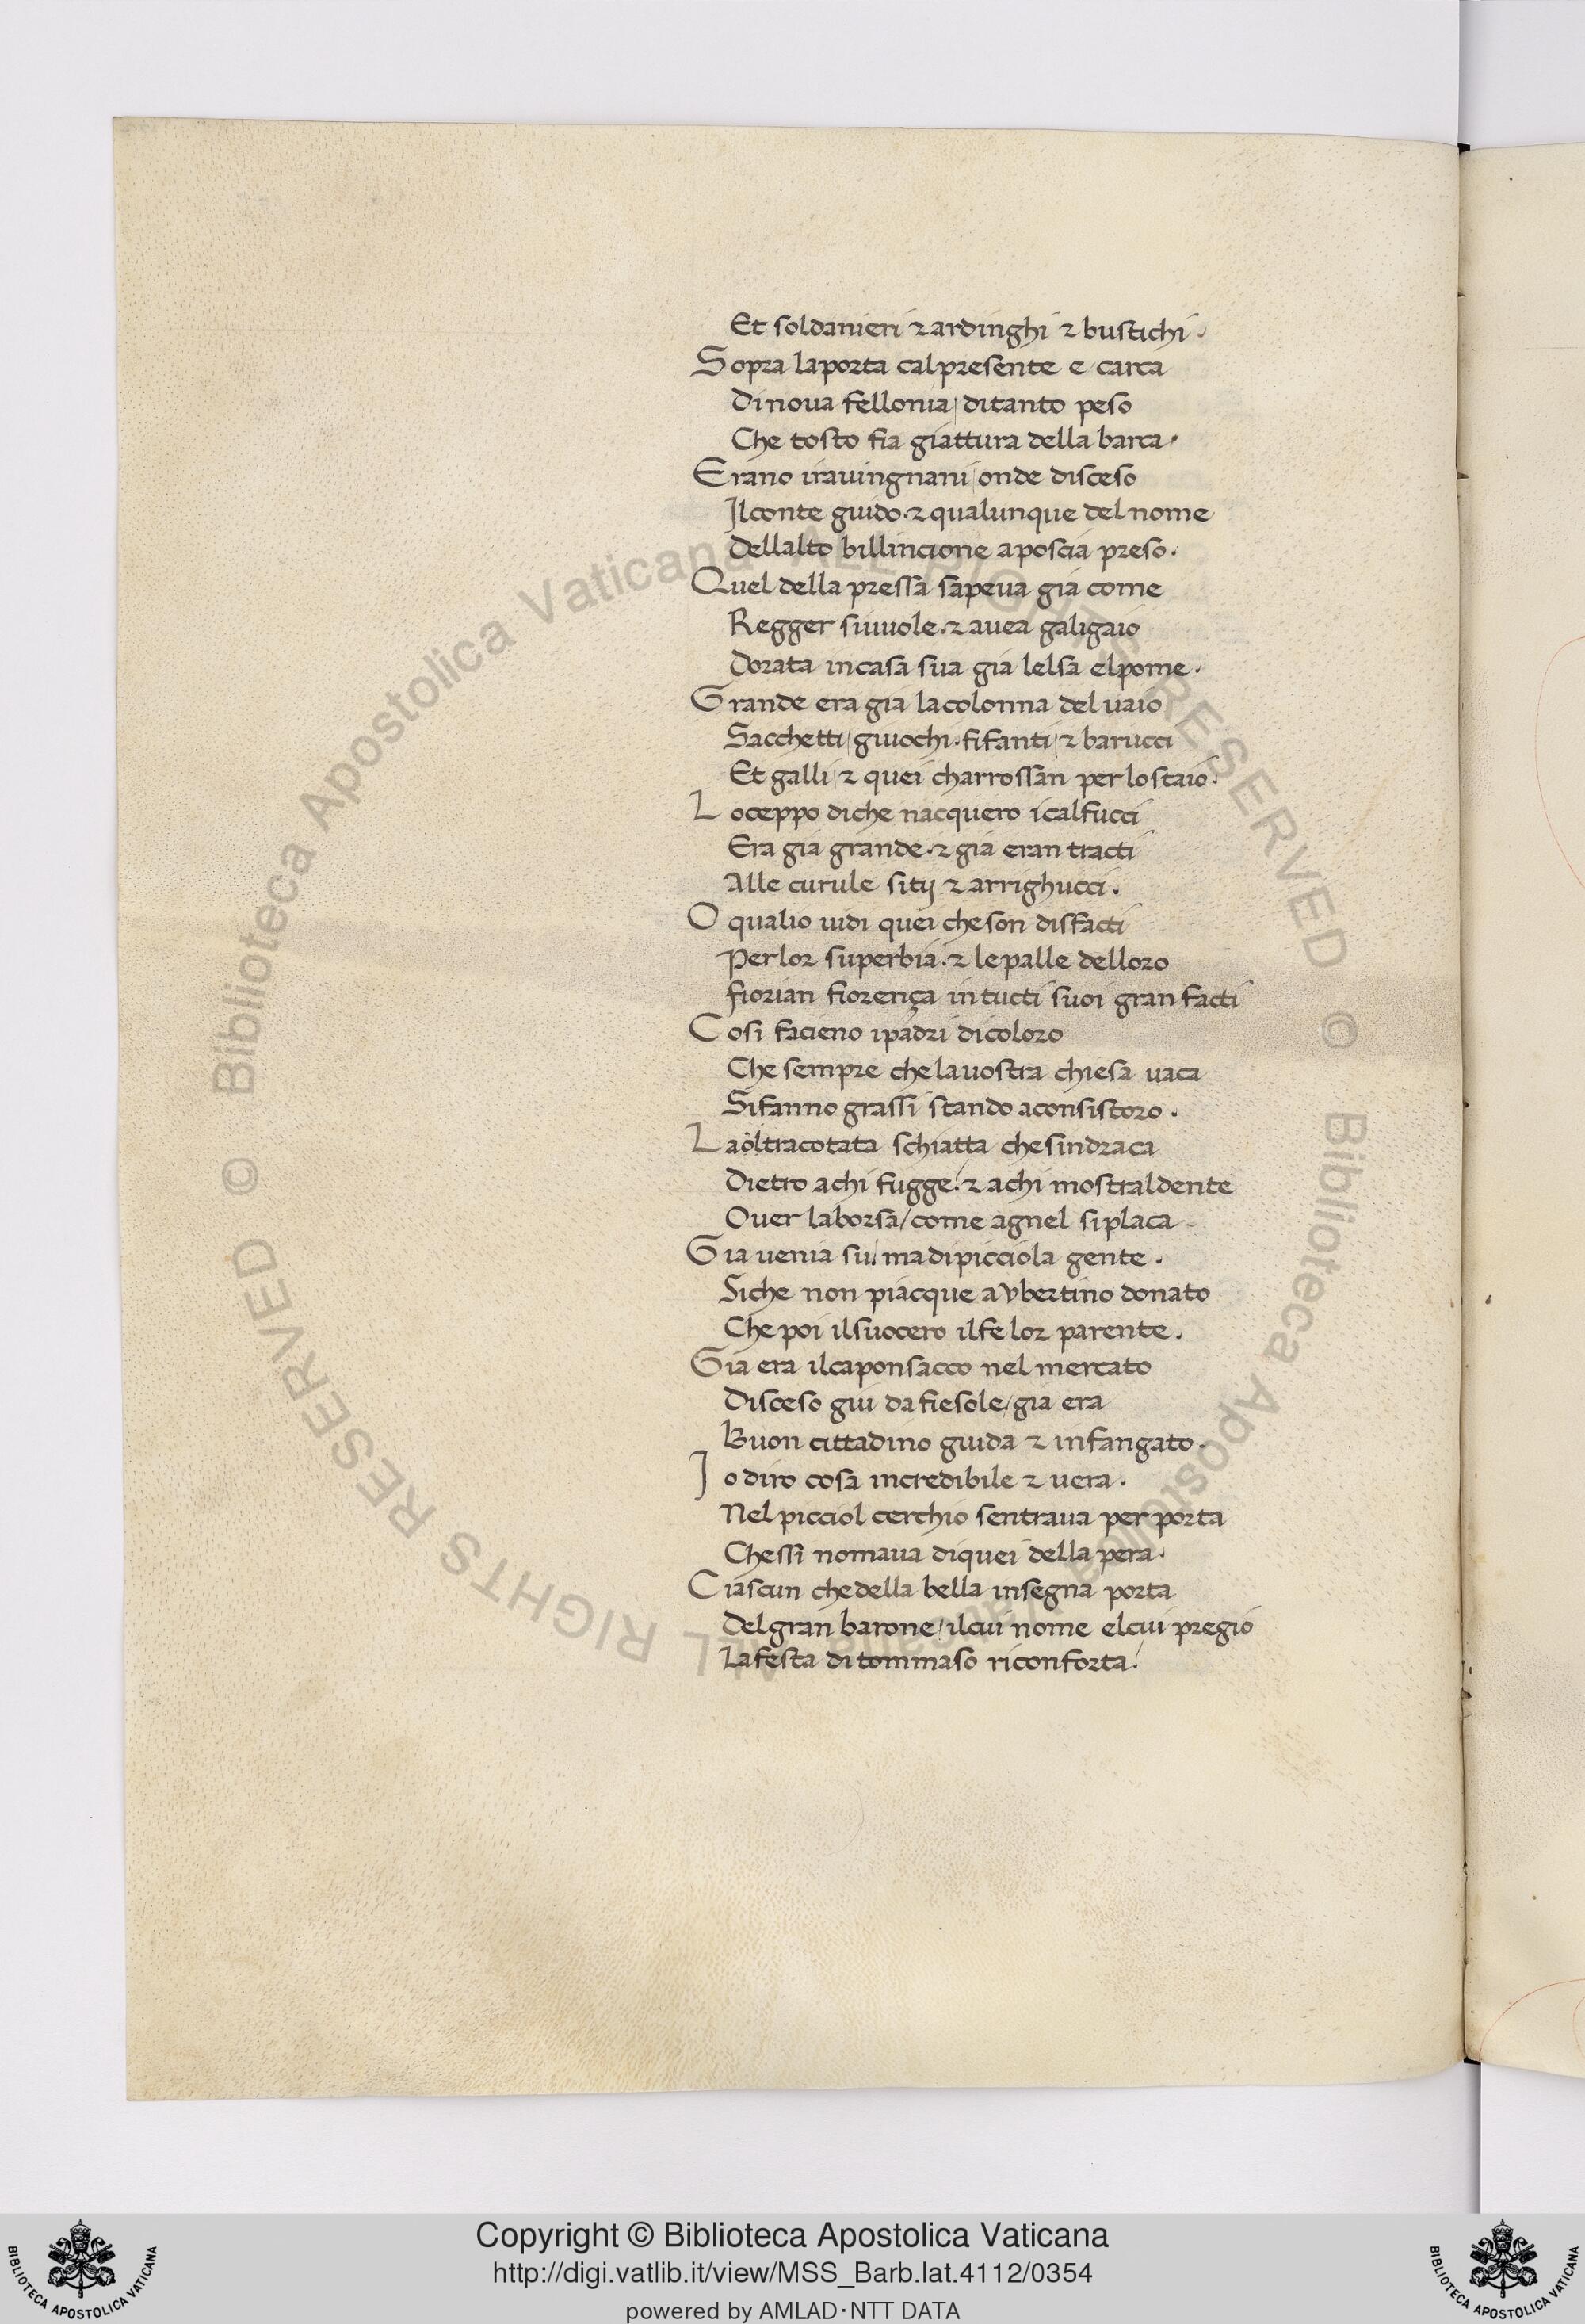 Et soldanieri ⁊ ardinghi ⁊ bustichi .
Sopra laporta calpresente e carca
Dinoua fellonia / ditanto peso
Che tosto fia giattura della barca.
Erano irauingnani / onde disceso
Ilconte guido. ⁊ qualunque del nome
Dellalto billincione a poscia preso.
Quel della pressa sapeua gia come
Regger siuuole. ⁊ auea galigaio
Dorata incasa sua gia lelsa elpome.
Grande era gia lacolonna del uaio
Sacchetti / giuochi. fifanti / ⁊ barucci
Et galli / ⁊ quei charrossan per lostaio.
Loceppo diche nacquero icalfucci
Era gia grande. ⁊ gia eran tracti
Alle curule sitij ⁊ arrighucci .
O qualio uidi quei cheson disfacti
Perlor superbia. ⁊ lepalle delloro
fiorian fiorença intucti suoi gran facti
Cosi facieno ipadri dicoloro
Che sempre chelauostra chiesa uaca
Sifanno grassi stando aconsistoro .
Laoltracotata schiatta chesindraca
Dietro achi fugge. / ⁊ achi mostraldente
Ouer laborsa / come agnel siplaca
Gia uenia su / ma dipicciola gente .
Siche non piacque a vbertino donato
Che poi ilsuocero ilfe lor parente.
Gia era ilcaponsacco nel mercato
Disceso giu da fiesole / gia era
Buon cittadino giuda ⁊ infangato.
Io diro cosa incredibile ⁊ uera .
Nel picciol cerchio sentraua per porta
Chessi nomaua diquei della pera.
Ciascun chedella bella insegna porta
Delgran barone / ilcui nome elcui pregio
Lafesta di tommaso riconforta.
Copyright © Biblioteca Apostolica Vaticana
http://digi.vatlib.it/view/MSS_Barb.lat.4112/0354
powered by AMLAD·NTT DATA
BIBLIOTECA APOSTOLICA VATICANA
BIBLIOTECA APOSTOLICA VATICANA
© Biblioteca Apostolica Vaticana ALL RIGHTS RESERVED © Biblioteca Apostolica Vaticana ALL RIGHTS RESERVED